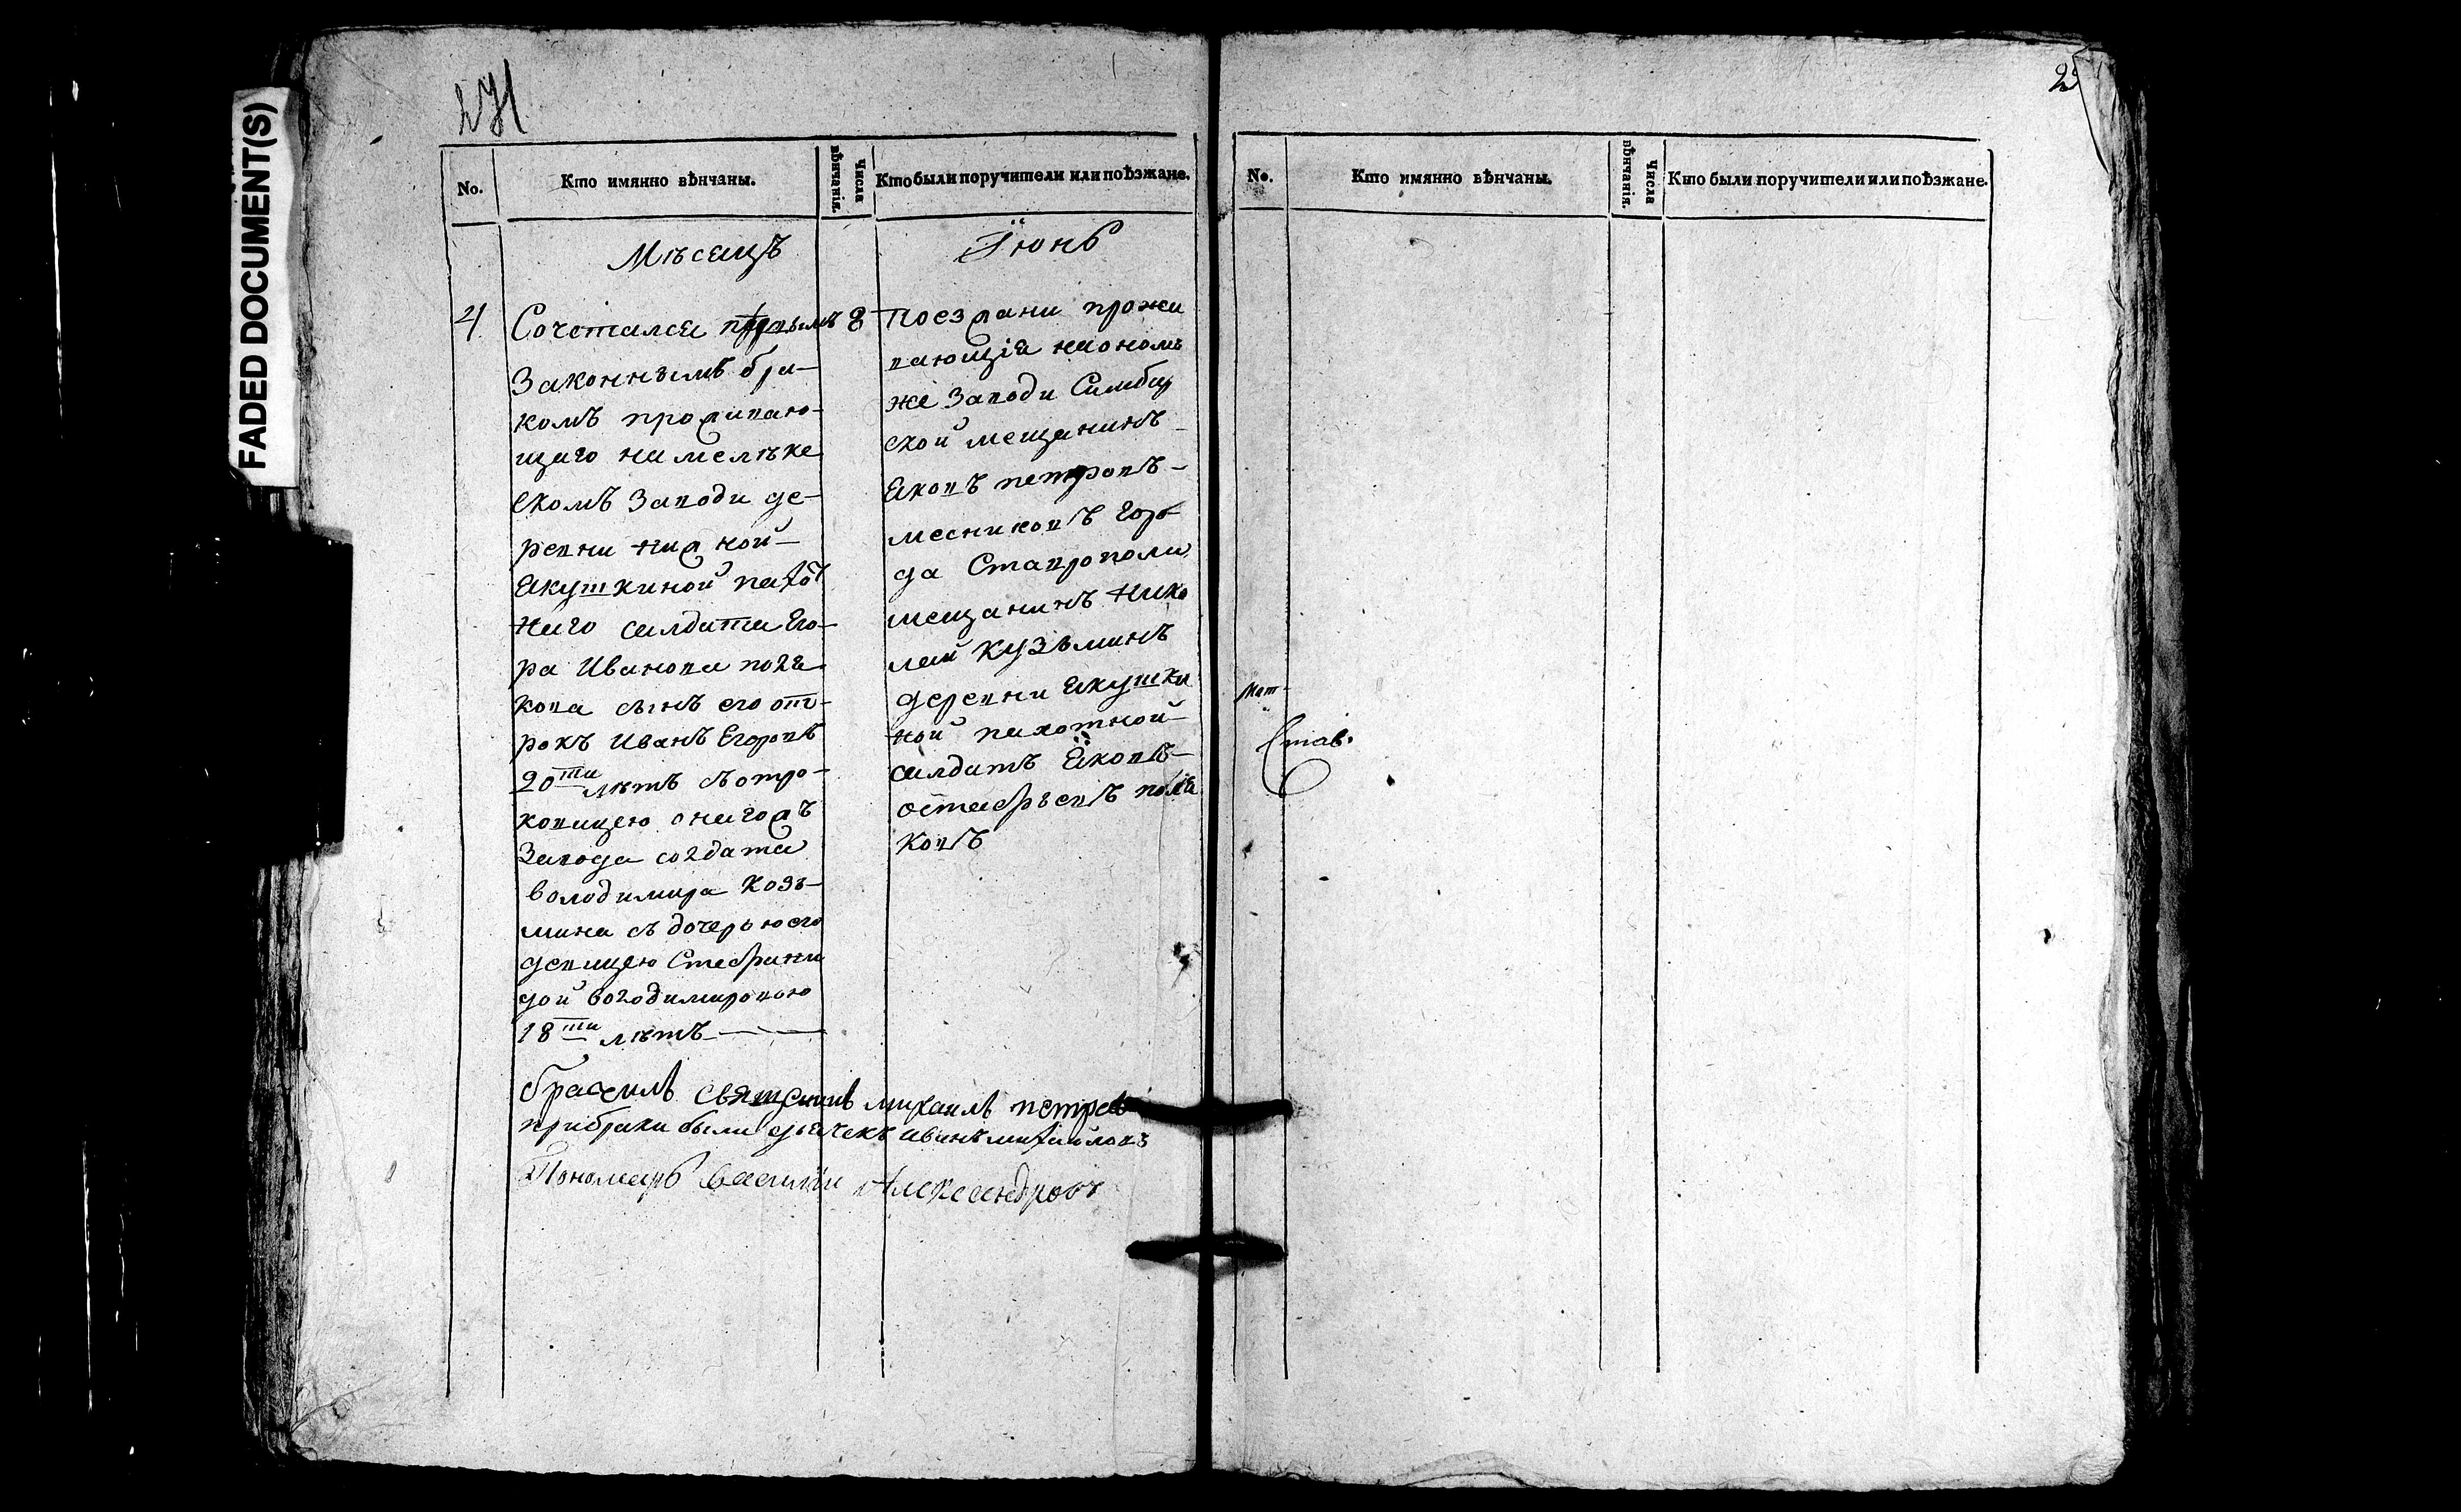 FADED DOCUMENT(S)
271
No.
Кто имянно вѣнчаны.
Числа вѣнчанія.
Кто были поручители или поѣзжане.
Мѣсецъ
Їюнь
4
Сочетался первымъ
законнымъ бра-
комъ проживаю-
щаго на мелѣке
скомъ заводи де-
ревни нижной
Якушкиной пахот
наго салдата Его-
ра Иванова поля
кова сынъ его от-
рокъ Иванъ Егоровъ
20ти лѣтъ сотро-
ковицею онагожъ
завода солдата
володимира Козь-
мина съ дочерью его
девицею Стефани
дой володимировою
18ти лѣтъ
8
Поезжани прожи
вающія наономъ
же заводи Симбир
ской мещанинъ
Яковъ петровъ
месниковъ горо
да Ставрополя
мещанинъ Нико
лай Кузьминъ
деревни Якушки
ной пахотной
салдатъ Яковъ
остафьевъ поля
ковъ
бракъ священникъ михаилъ петровъ
прибраки были дьячекъ иванъ михайловъ
Пономарь василий Александровъ
No.
Кто имянно вѣнчаны.
Числа вѣнчанія.
Кто были поручители или поѣзжане.
Мат-
Став.